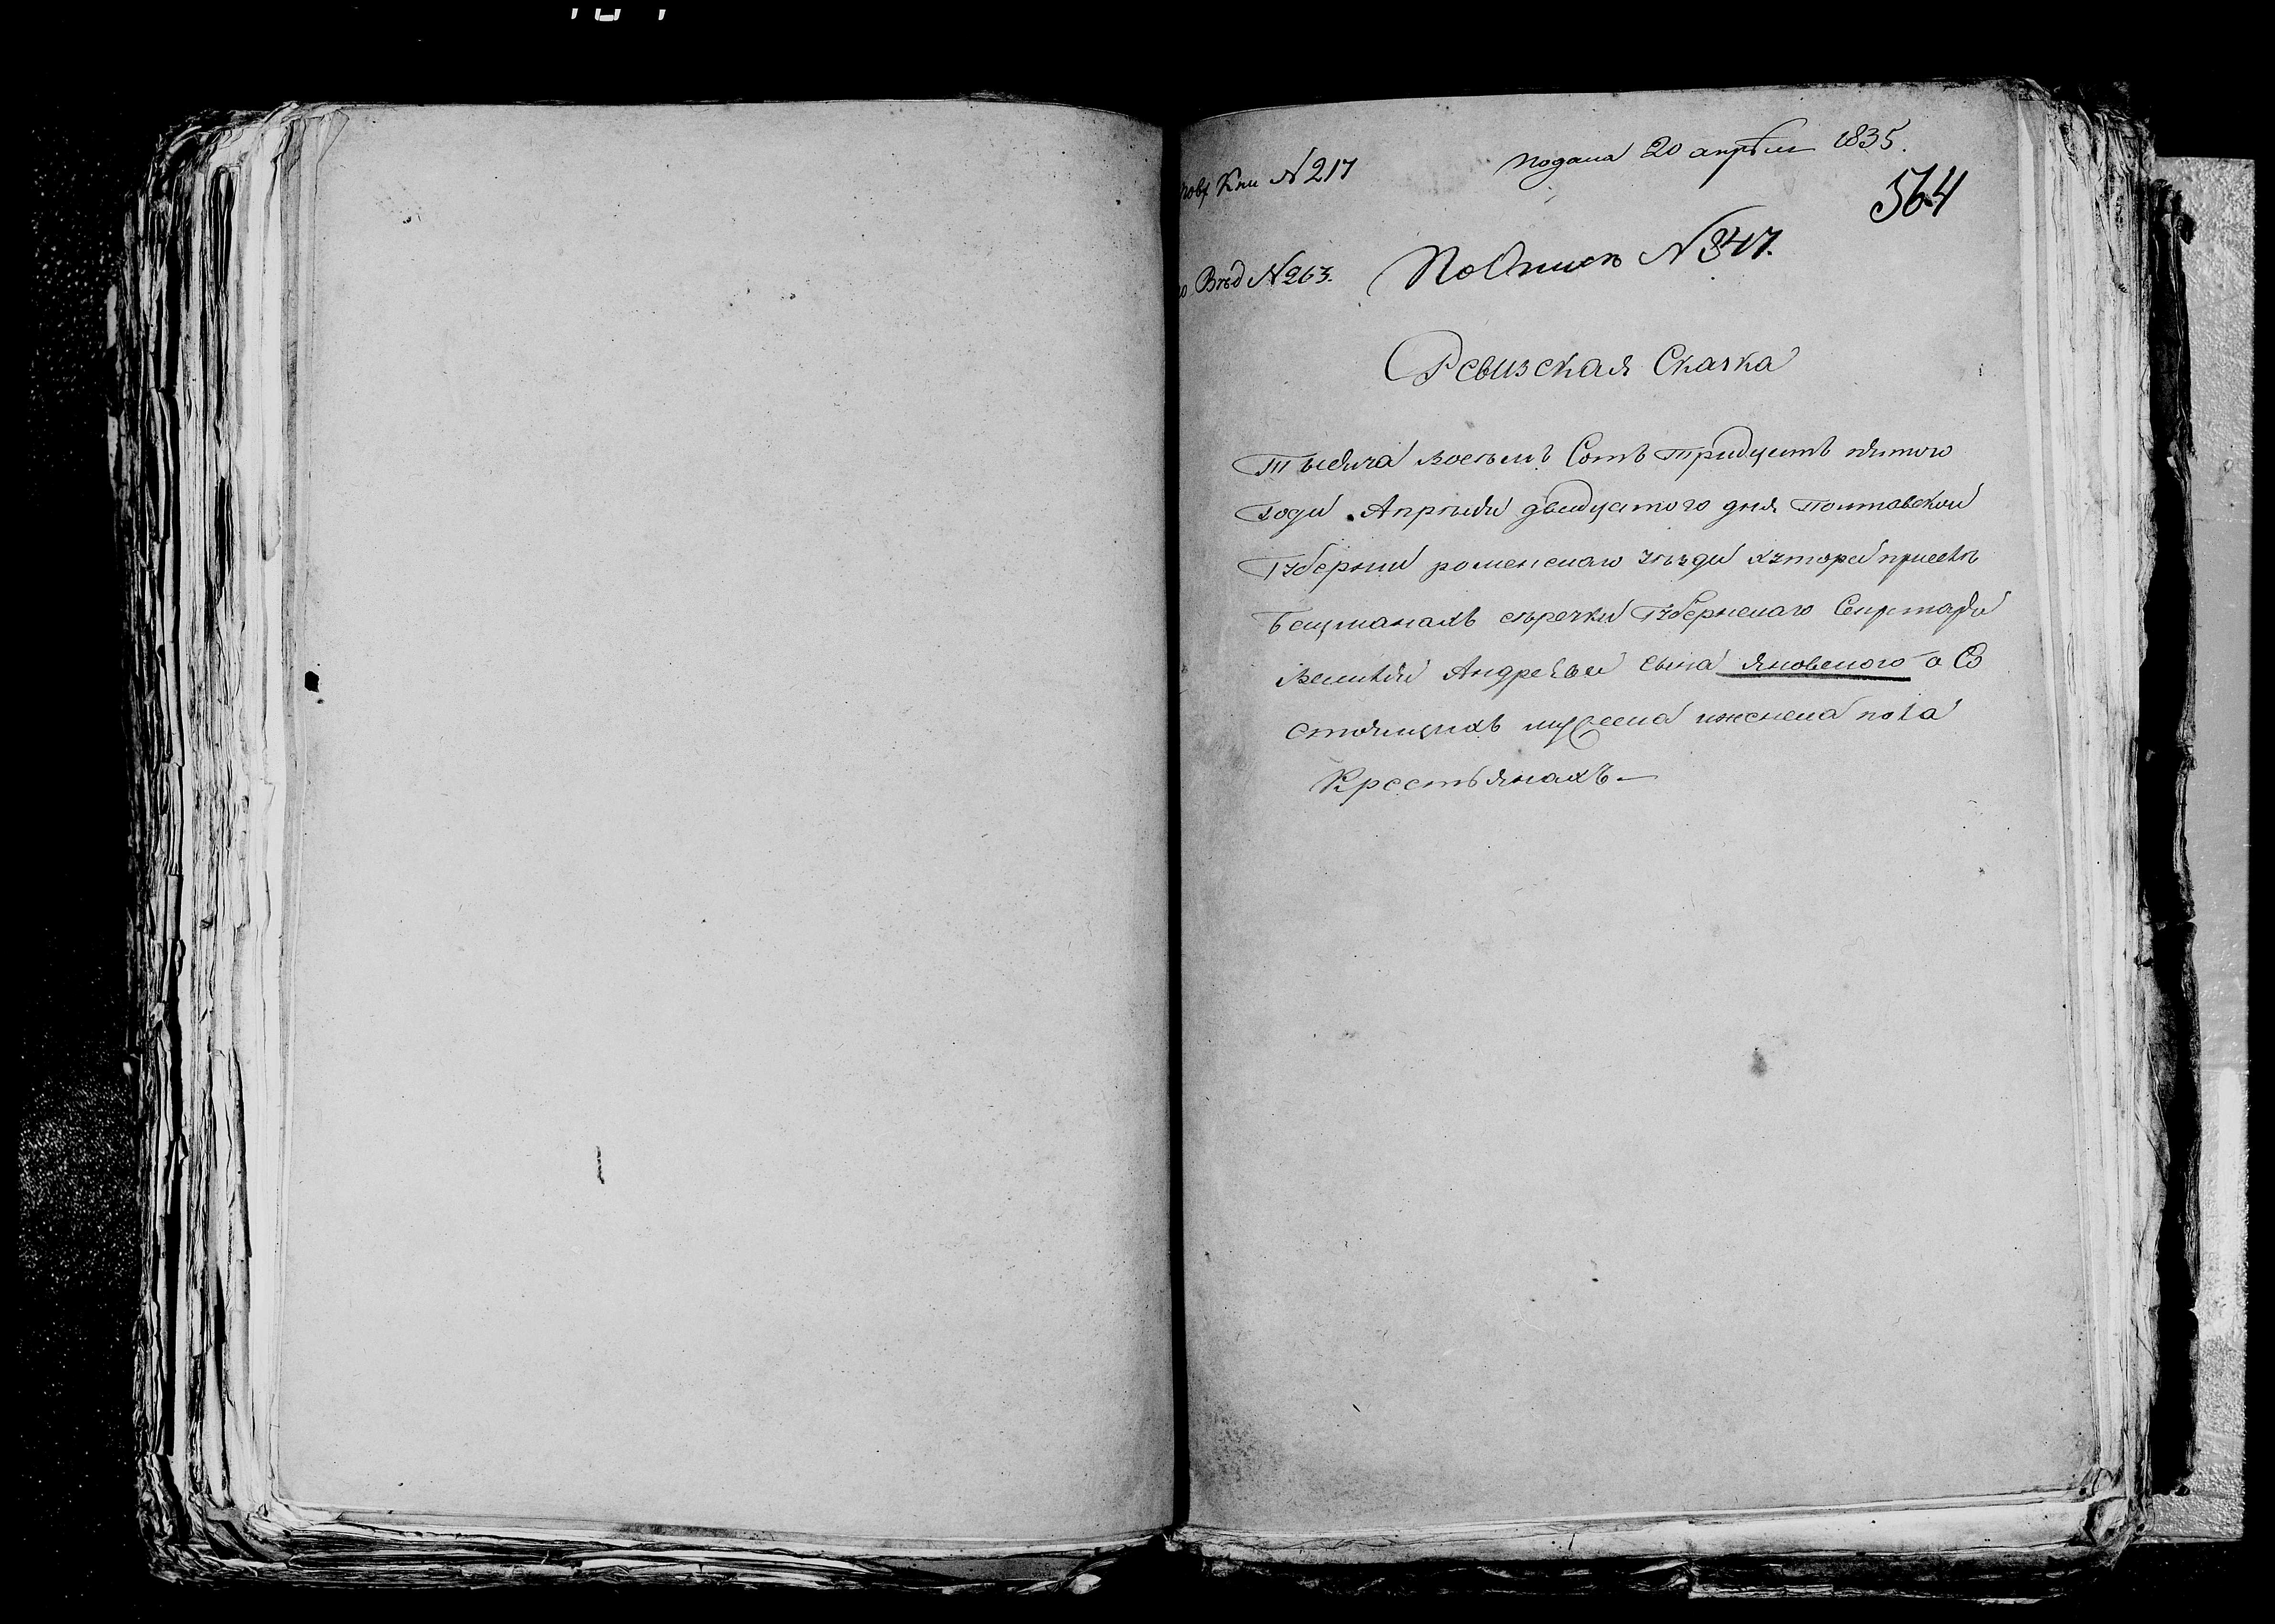 подана 20 апрѣля 1835.
Кни №217
564
Вѣд №263.
По Описи №347.
Ревизская Сказка
Тысяча восемь Сотъ тридцать пятого
Года Апреля двадцатого дня Полтавской
Губернии роменскаго уѣзда хутора при
речки Губернскаго Секретаря
Василия Андреева сына Яновского о Со
стоящихъ мужеска и женска пола
Крестьянахъ—